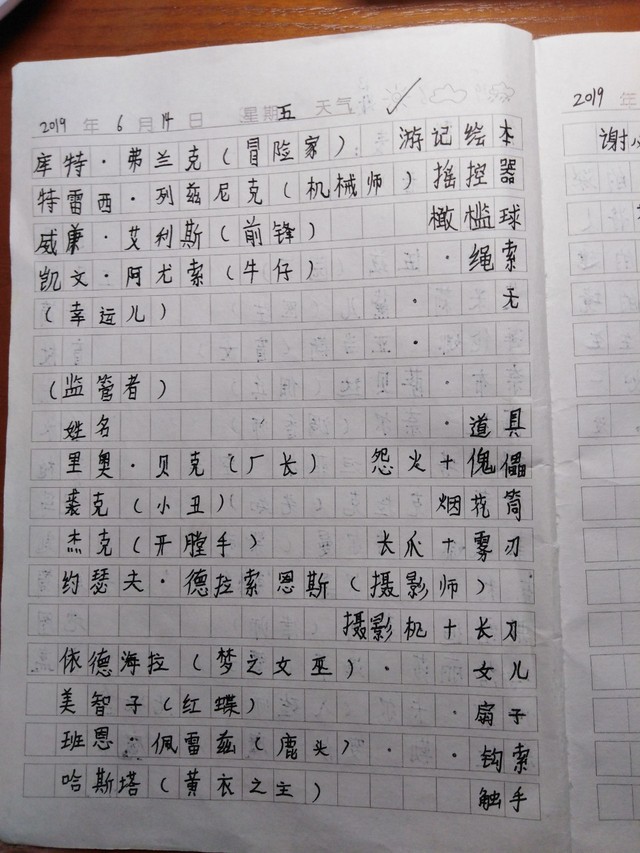 2019 年 6 月 14 日 星期五 天气
库特·弗兰克(冒险家) 游记绘本
特雷西·列兹尼克(机械师) 摇控器
威廉·艾利斯(前锋) 橄榄球
凯文·阿尤索(牛仔) · 绳索
(幸运儿) · 无
(监管者)
姓名 · 道具
里奥·贝克(厂长) 怨火+傀儡
裘克(小丑) 烟花筒
杰克(开膛手) 长爪+雾刃
约瑟夫·德拉索恩斯(摄影师)
摄影机+长刀
依德海拉(梦之女巫) · 女儿
美智子(红蝶) · 扇子
班恩·佩雷兹(鹿头) · · 钩索
哈斯塔(黄衣之主) 触手
2019 年
谢